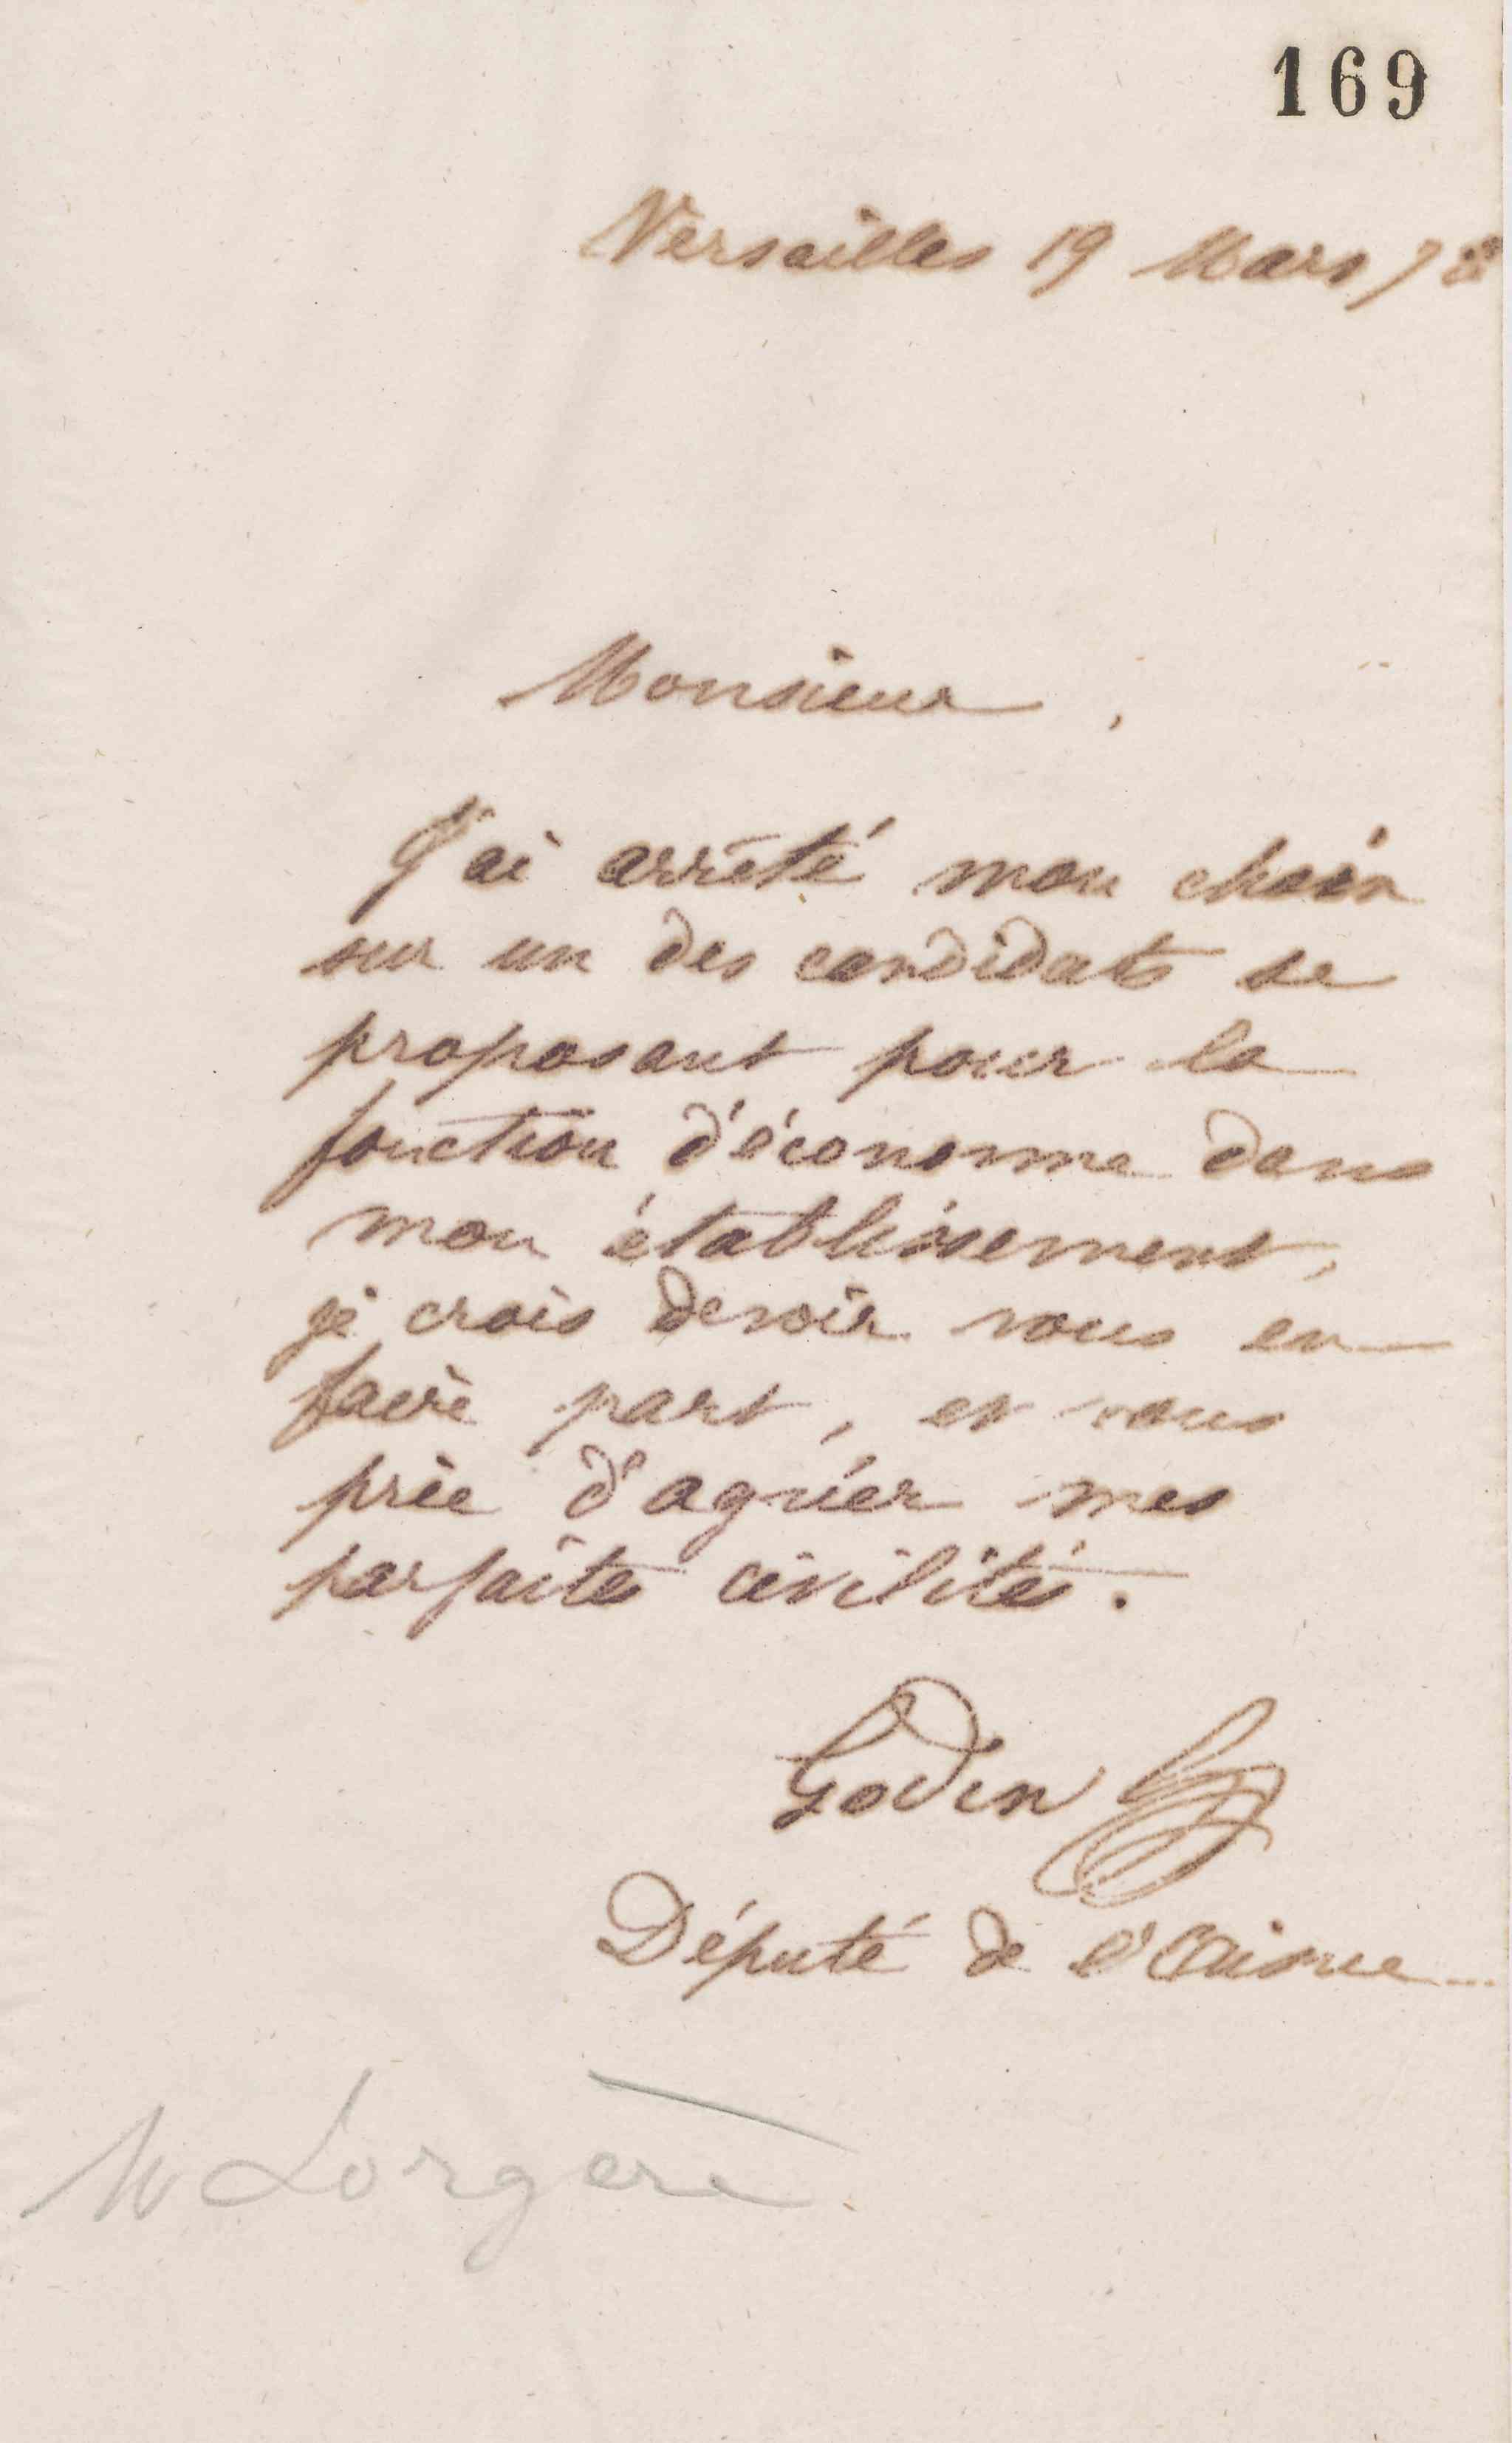 169
Versailles 19 Mars 73
Monsieur,
J'ai arrêté mon choix
sur un des candidats se
proposant pour la
fonction d'économe dans
mon établissement,
je crois devoir vous en
faire part, et vous
prie d'agréer mes
parfaites civilités.
Godin
Député de l'Aisne
M Lorgère